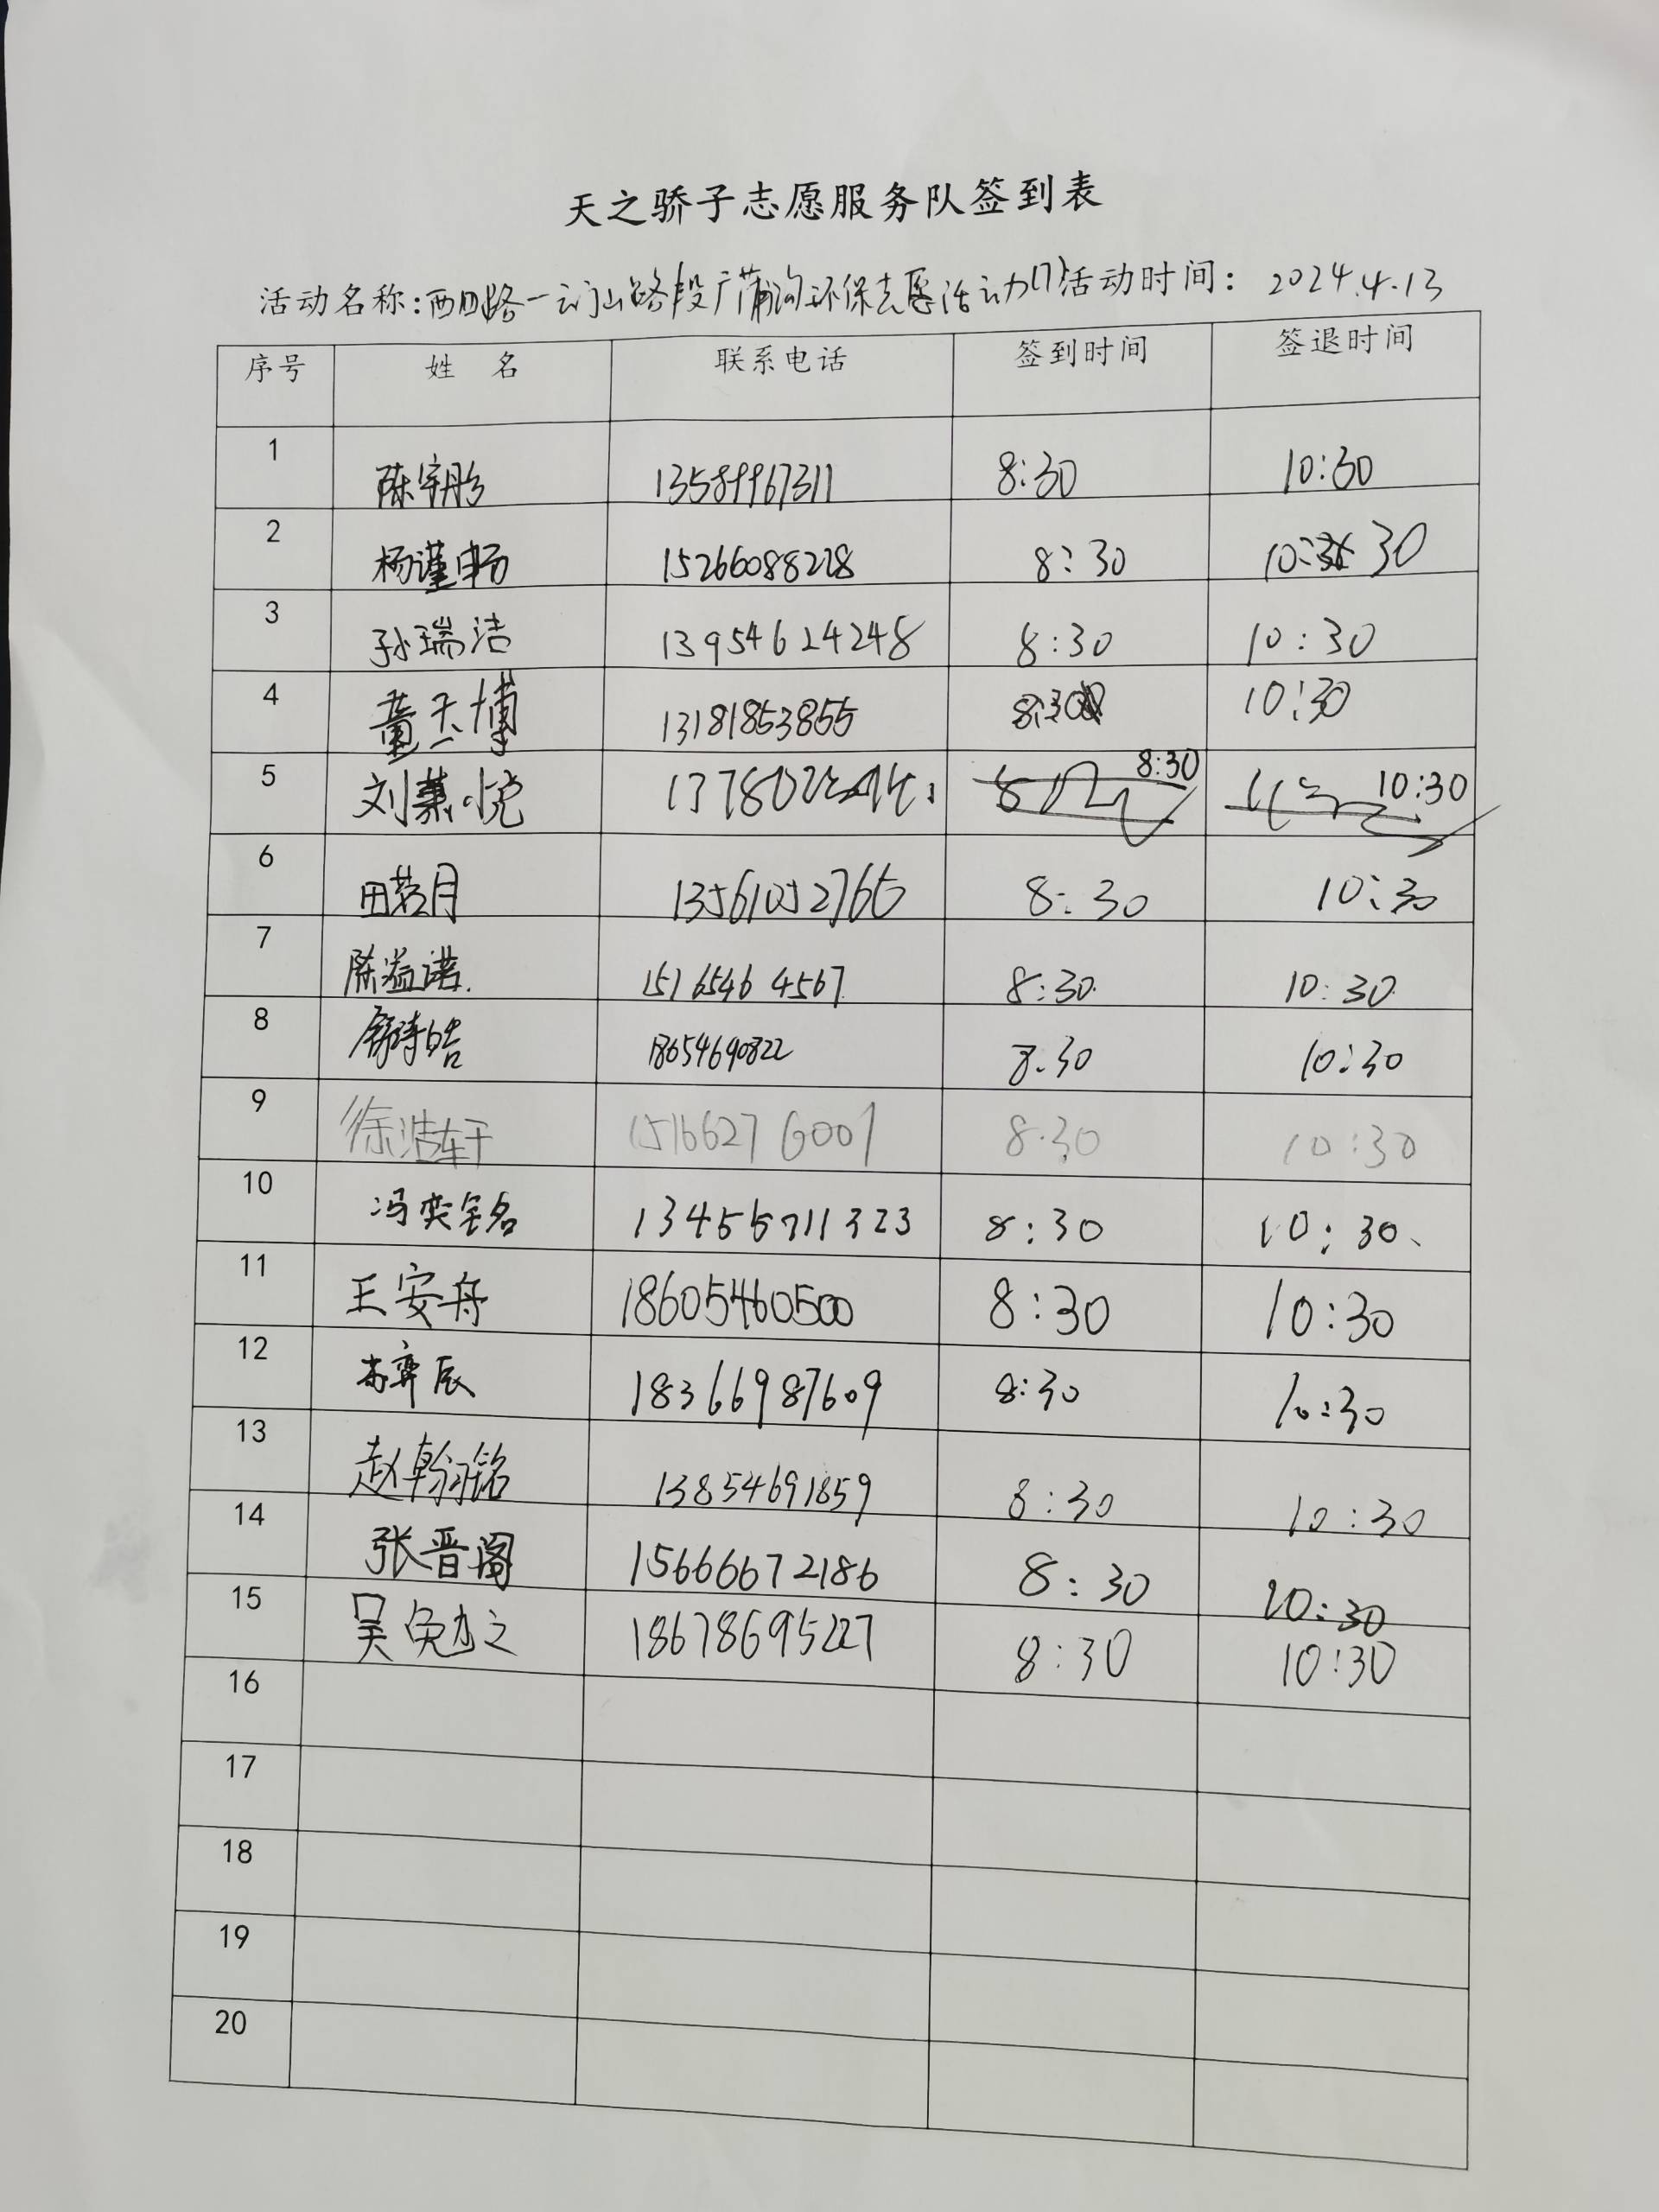 天之骄子志愿服务队签到表
活动名称:西四路一云门山路段广蒲沟环保志愿活动(7)活动时间: 2024.4.13
序号 姓 名 联系电话 签到时间 签退时间
1 陈宇彤 13589967311 8:30 10:30
2 杨谨畅 15266088228 8:30 10:30
3 孙瑞洁 13954624248 8:30 10:30
4 董天博 13181853855 8:30 10:30
5 刘 悦 8:30 10:30
6 田 月 13561052765 8:30 10:30
7 陈溢诺. 15165464567 8:30 10:30
8 皓 18654690822 8:30 10:30
9 徐浩轩 15166276001 8:30 10:30
10 冯奕铭 13455711323 8:30 10:30、
11 王安舟 18605460500 8:30 10:30
12 李弈辰 18366987609 8:30 10:30
13 赵翰铭 13854691859 8:30 10:30
14 张晋阁 15666672186 8:30 10:30
15 吴勉之 18678695227 8:30 10:30
16
17
18
19
20